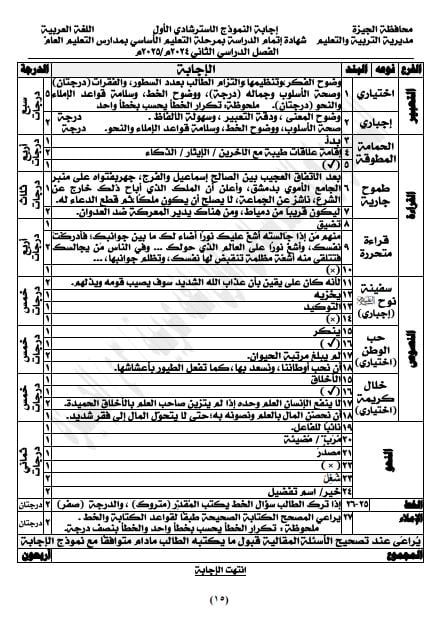 محافظة الجيزة
إجابة النموذج الاسترشادي الأول
اللغة العربية
مديرية التربية والتعليم
شهادة إتمام الدراسة بمرحلة التعليم الأساسي بمدارس التعليم العام
الفصل الدراسي الثاني ٢٠٢٤م/٢٠٢٥م
الفرع نوعه البند الإجابة الدرجة
التعبير
اختياري ١ وضوح الفكر وتنظيمها والتزام الطالب بعدد السطور، والفقرات (درجتان)
صحة الأسلوب وجماله (درجة)، ووضوح الخط، وسلامة قواعد الإملاء
والنحو (درجتان). ملحوظة: تكرار الخطأ يحسب بخطأ واحد
إجباري ٢ وضوح المعنى، ودقة التعبير، وسهولة الألفاظ. درجة
صحة الأسلوب، ووضوح الخط، وسلامة قواعد الإملاء والنحو. درجة
سبع درجات
القراءة
الحمامة المطوقة
٣
٤ إقامة علاقات طيبة مع الآخرين / الإيثار / الذكاء
٥ (✓)
أربع درجات
طموح جارية
٦ بعد الاتفاق العجيب بين الصالح إسماعيل والفرنج، جهر بفتواه على منبر
الجامع الأموي بدمشق، وأعلن أن الملك الذي أباح ذلك خارج عن
الشرع، ناشز عن الجماعة، لا يصلح أن يكون ملكًا ثم قطع الدعاء له.
٧ ليكون قريبًا من دمياط، ومن هناك يدير المعركة ضد العدوان.
ثلاث درجات
قراءة متحررة
٨ تضيق
٩ منهم مَن إذا جالسته أشع عليك نورًا أضاء لك ما بين جوانبك، فأدركت
نفسك، وأشع نورًا على العالم الذي حولك ... وفي الناس مَن يجالسك
فتتلقى منه أشعة مظلمة تنقبض لها نفسك، وتظلم جوانبها، ...
١٠ (×)
أربع درجات
النصوص
سفينة نوح
١١ لأنه كان على يقين بأن عذاب الله الشديد سوف يصيب قومه ويذلهم.
١٢ يخزيه
١٣ التوكيد
١٤ (×)
خمس درجات
حب الوطن (اختياري)
١٥ ينكر
١٦ (✓)
١٧ لم يبلغ مرتبة الحيوان.
١٨ أن نحب أوطاننا، ونسعد بها، كما تفعل الطيور بأعشاشها.
خمس درجات
خلال كريمة (اختياري)
١٥ الأخلاق
١٦ (✓)
١٧ لا ينفع الإنسان العلم وحده إذا لم يتزين صاحب العلم بالأخلاق الحميدة.
١٨ أن نحصّن المال بالعلم ونصونه به؛ حتى لا يتحوّل المال إلى فقر شديد.
خمس درجات
النحو
١٩ نائبًا للفاعل.
٢٠ / مضيئة
٢١ مصدر
٢٢ (×)
٢٣
٢٤ خبر/ اسم تفضيل
ثماني درجات
الخط ٢٥-٢٦ إذا ترك الطالب سؤال الخط يكتب المقدّر (متروك) ، والدرجة (صفر) ٢ درجتان
الإملاء ٢٧ يراعي المصحح الكتابة الصحيحة طبقًا لقواعد الكتابة والخط.
ملحوظة : تكرار الخطأ يحسب بخطأ واحد والخطأ بنصف درجة. ٢ درجتان
يُراعى عند تصحيح الأسئلة المقالية قبول ما يكتبه الطالب مادام متوافقًا مع نموذج الإجابة
المجموع أربعون
انتهت الإجابة
(١٥)